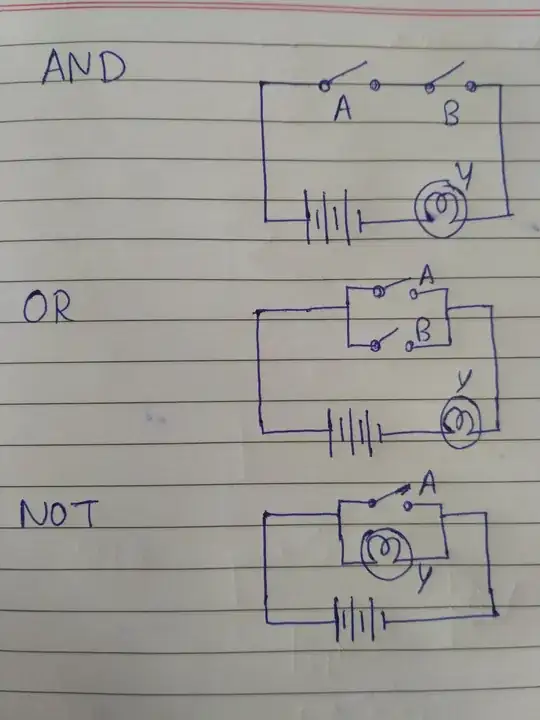 AND
A
B
Y
OR
A
B
Y
NOT
A
Y